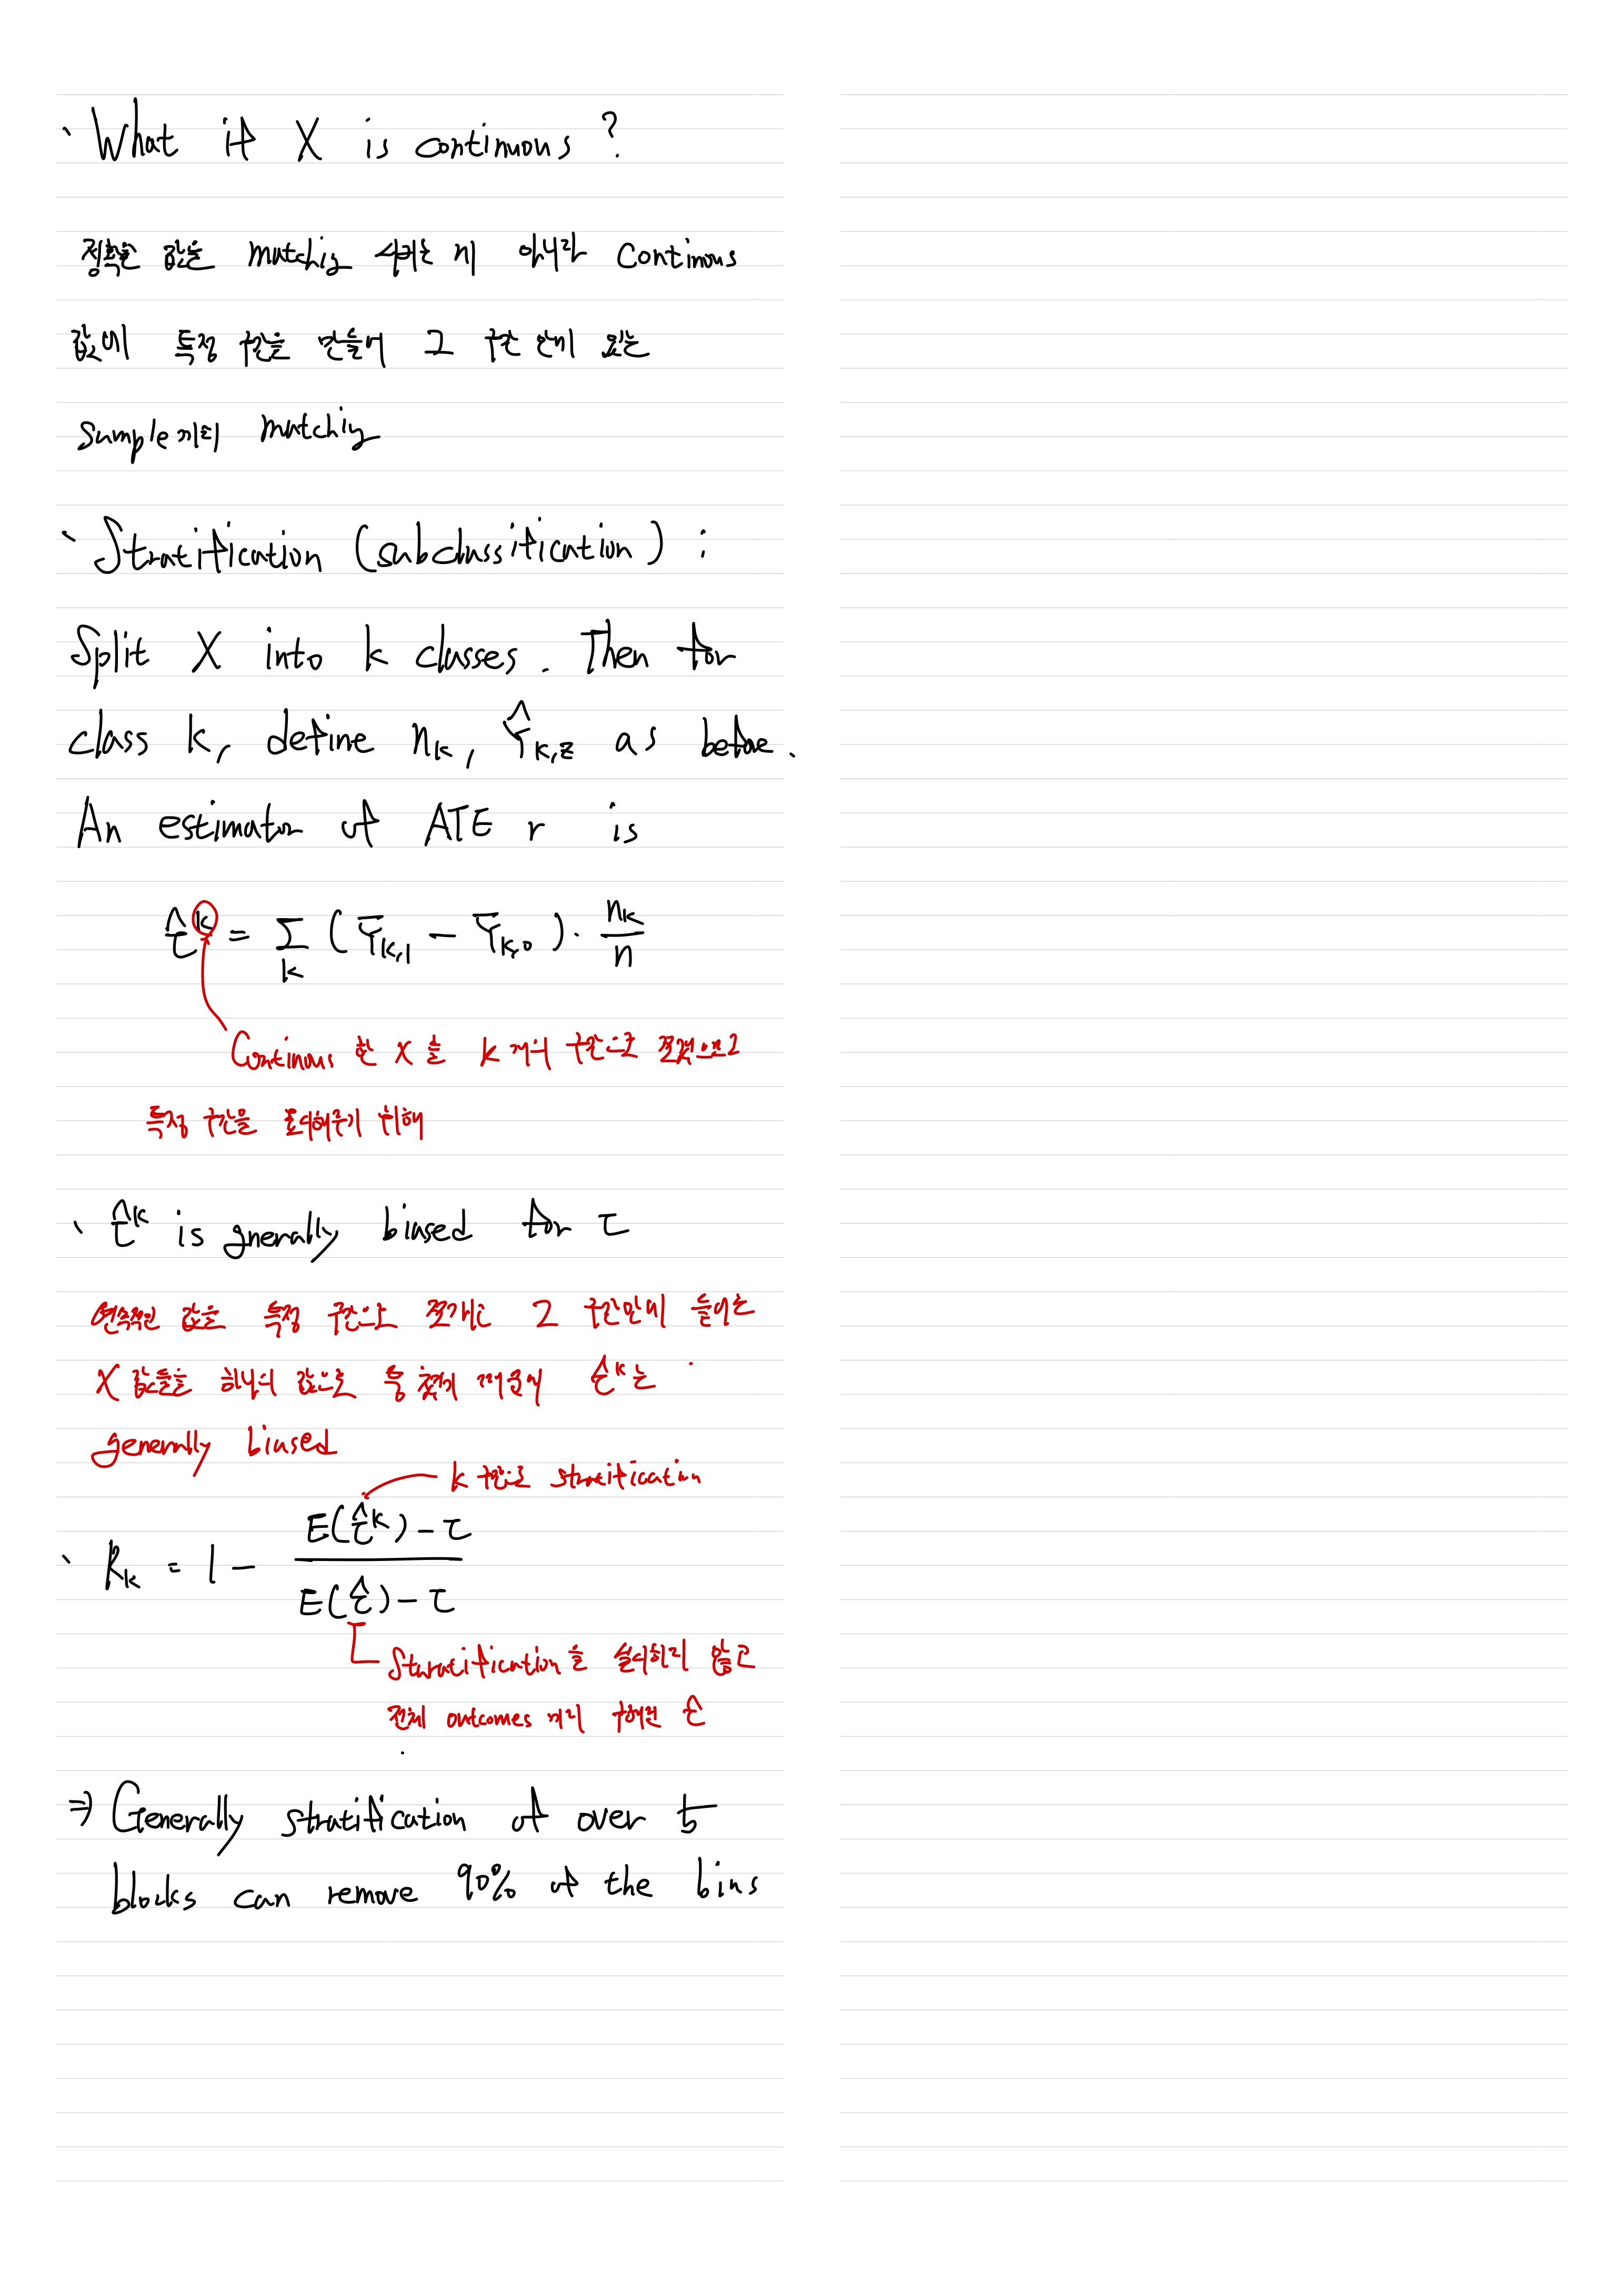 What if X is continuous ?
정확한 값을 matchig 시키는 게 아니라 Continous
값에 특정 구간을 만들어 그 구간 안에 있는
Sample끼리 matchig
Stratification (subclassification) :
Split X into k classes. Then for
class k, define nₖ, Ŷₖ,z as before.
An estimator of ATE r is
τ̂ᵏ = Σₖ (Ȳₖ,₁ − Ȳₖ,₀) · nₖ/n
Continous 한 X를 k개의 구간으로 쪼갰으므로
특정 구간을 표시해주기 위해
τ̂ᵏ is gnerally biased for τ
연속적인 값을 특정 구간으로 쪼개고 그 구간안에 들어온
X 값들을 하나의 값으로 퉁쳤기 때문에 τ̂ᵏ는
generally biased
k 구간으로 stratification
Rₖ = 1 − (E(τ̂ᵏ) − τ)/(E(τ̂) − τ)
Stratification을 실시하지 않고
전체 outcomes 끼리 구해진 τ̂
⇒ Generally stratification of over 5
blocks can remove 90% of the bias